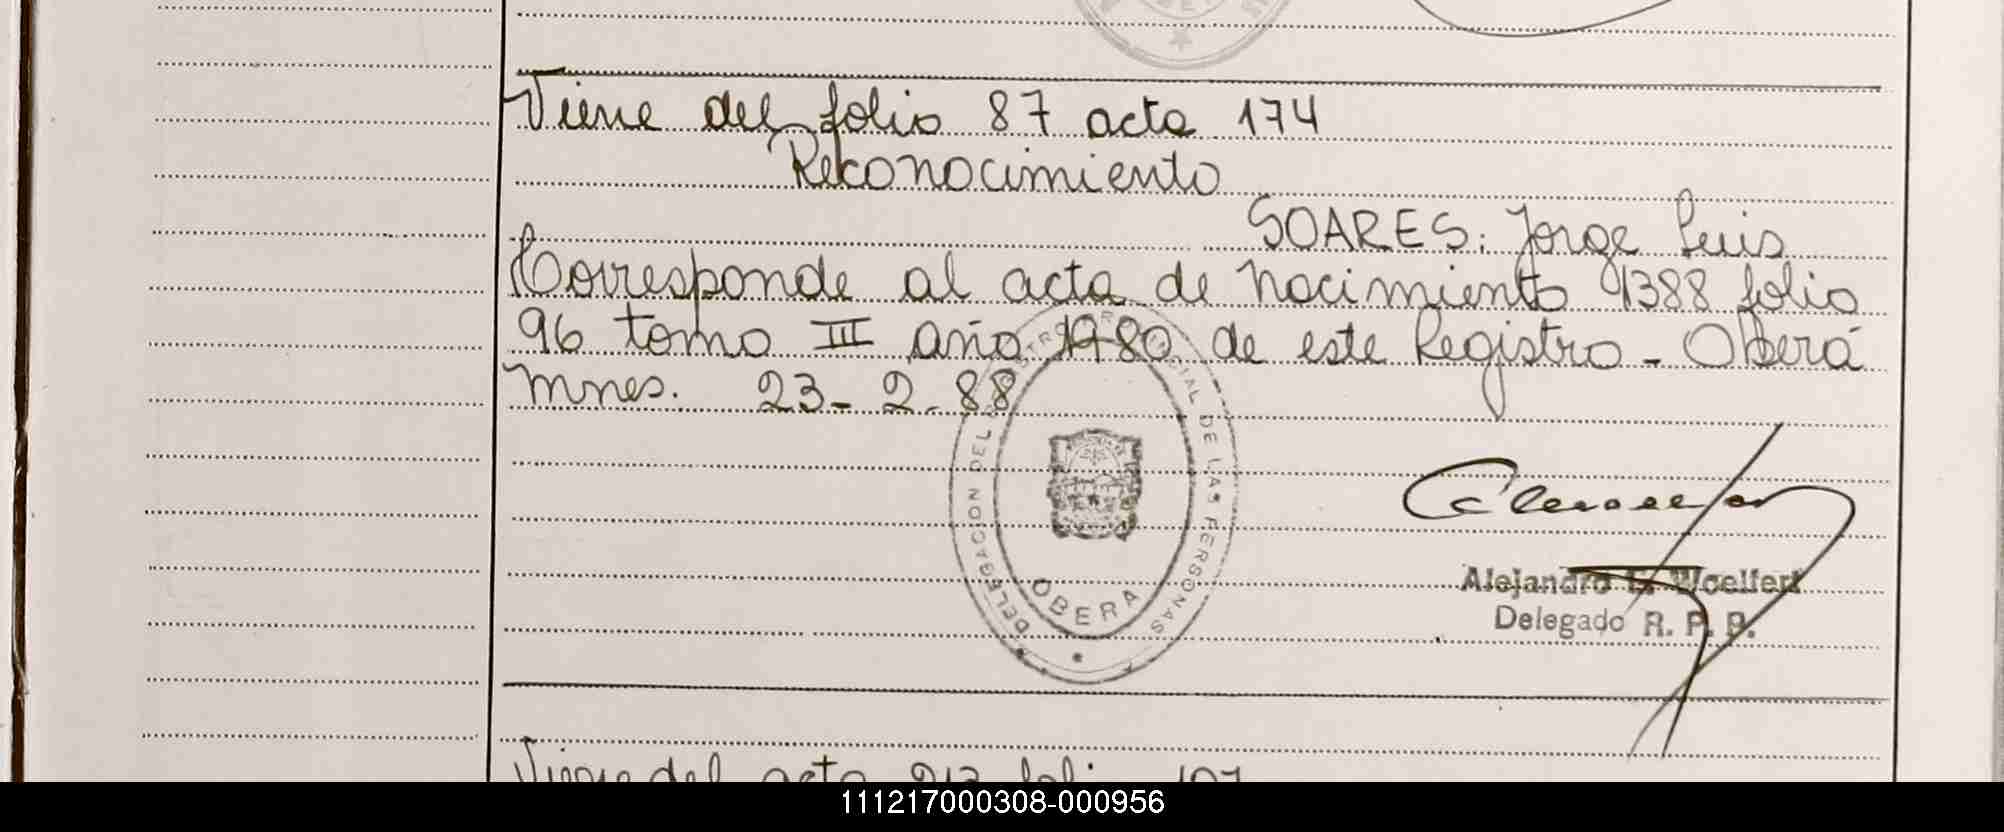 Viene del folio 87 acta 174
Reconocimiento
SOARES: Jorge Luis
Corresponde al acta de nacimiento 1388 folio
96 tomo III año 1980 de este Registro - Oberá
Mnes. 23-2-88
DELEGACION DEL REGISTRO PROVINCIAL DE LAS PERSONAS
OBERA
Alejandro E. Woelfert
Delegado R. P. P.
Viene del acta 213 folio 107
111217000308-000956